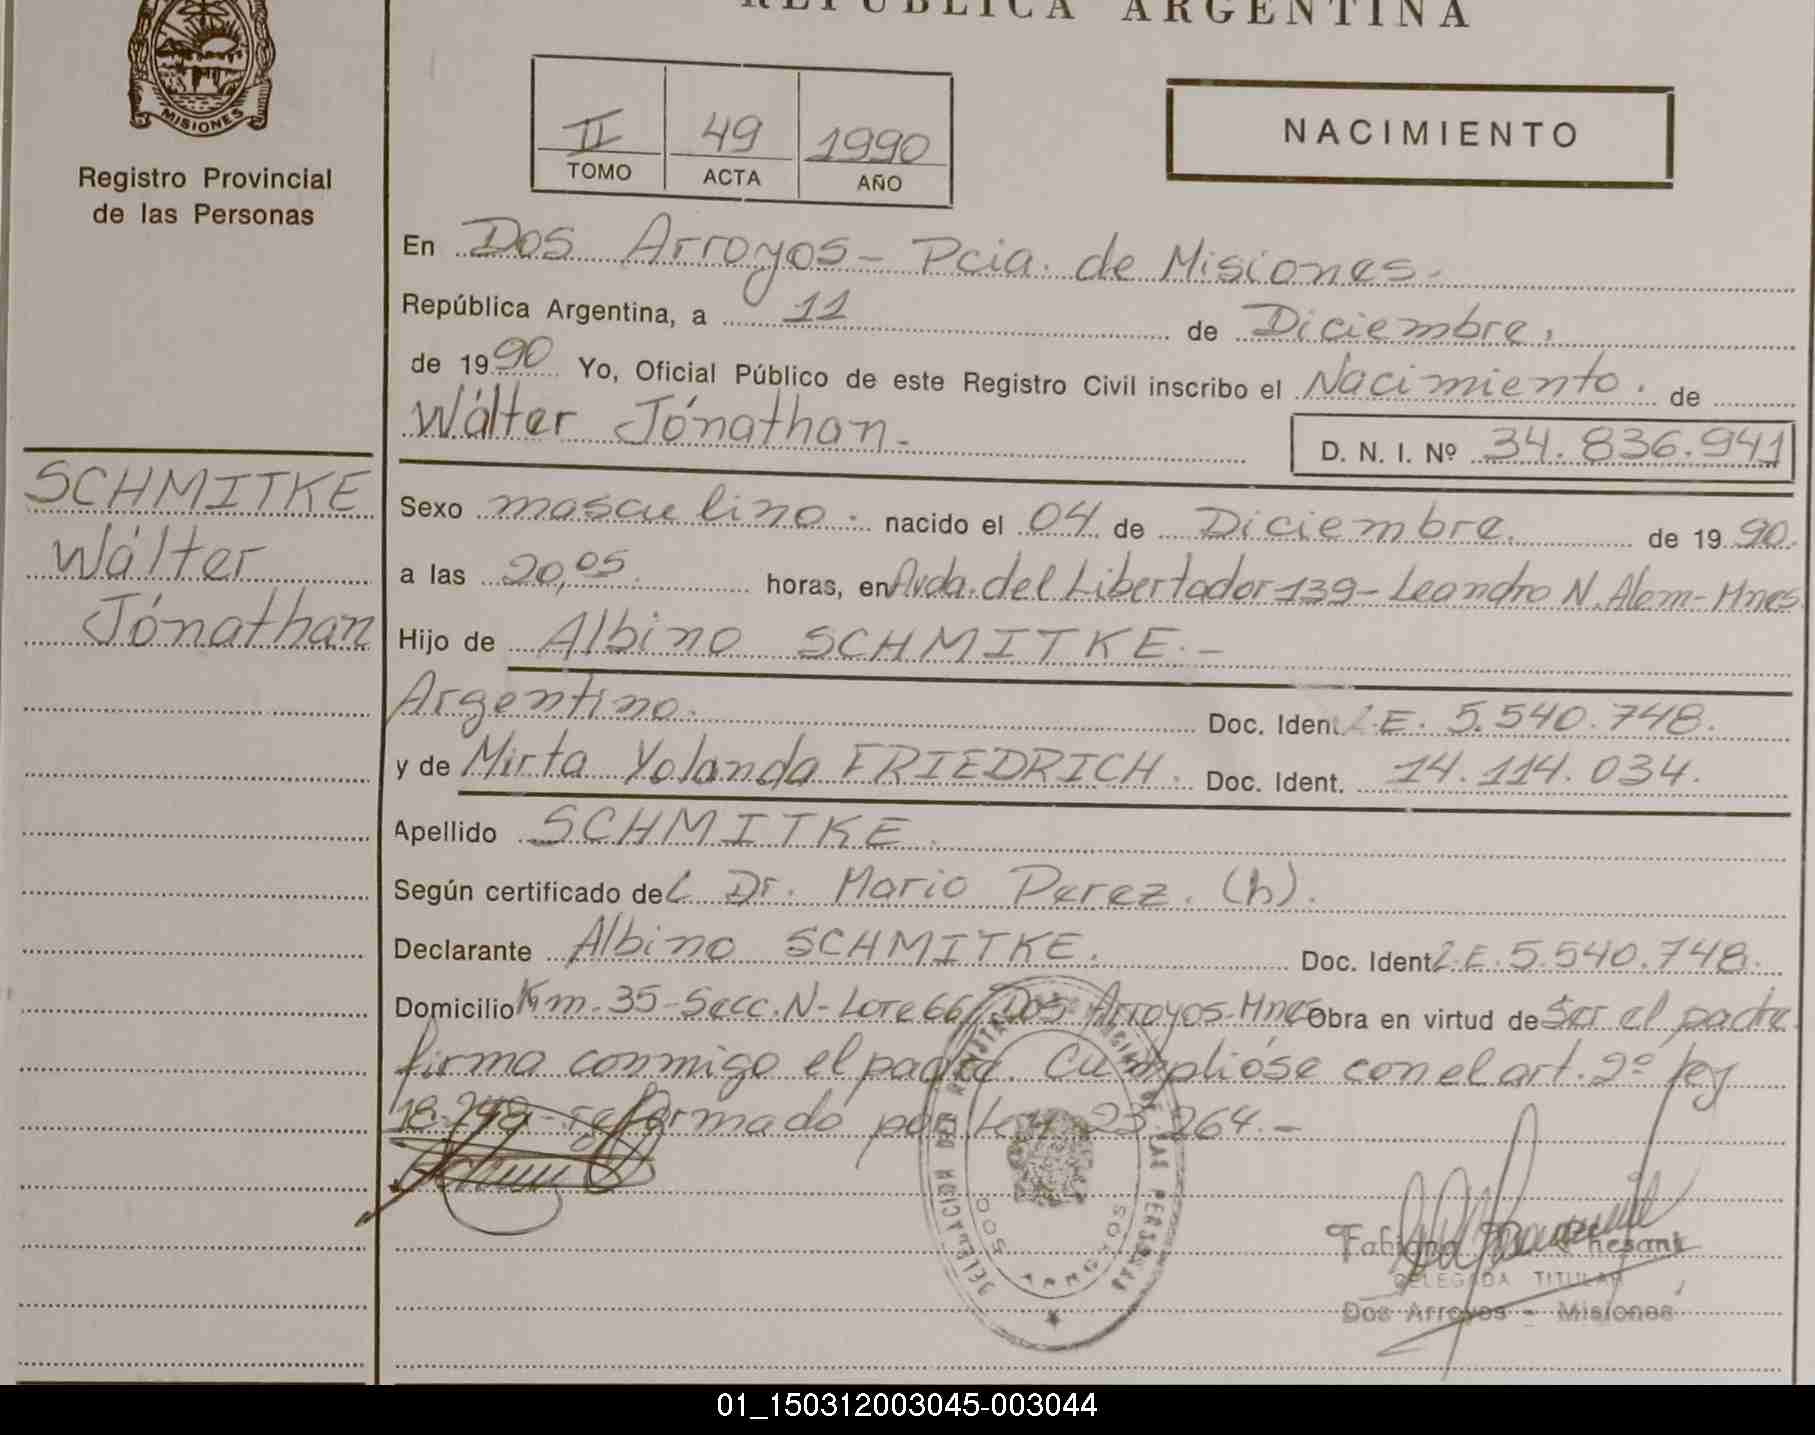 REPUBLICA ARGENTINA
MISIONES
Registro Provincial
de las Personas
II 49 1990
TOMO ACTA AÑO
NACIMIENTO
En Dos Arroyos - Pcia. de Misiones.
República Argentina, a 11 de Diciembre,
de 1990 Yo, Oficial Público de este Registro Civil inscribo el Nacimiento. de
Wálter Jónathan.-
D. N. I. Nº 34.836.941
SCHMITKE
Wálter
Jónathan
Sexo masculino. nacido el 04 de Diciembre. de 1990.
a las 20,05 horas, en Avda. del Libertador 139 - Leandro N. Alem - Mnes
Hijo de Albino SCHMITKE.-
Argentino. Doc. Ident L.E. 5.540.748.
y de Mirta Yolanda FRIEDRICH. Doc. Ident. 14.114.034.
Apellido SCHMITKE.
Según certificado del Dr. Mario Perez. (h).
Declarante Albino SCHMITKE. Doc. Ident L.E. 5.540.748.
Domicilio Km. 35 - Secc. N - Lote 66 Dos Arroyos - Mnes Obra en virtud de Ser el padre
firma conmigo el padre. Cumplióse con el art. 2º ley
18.248 - reformado por Ley 23.264.-
DE LAS PERSONAS
DELEGADA TITULAR
Dos Arroyos - Misiones
01_150312003045-003044